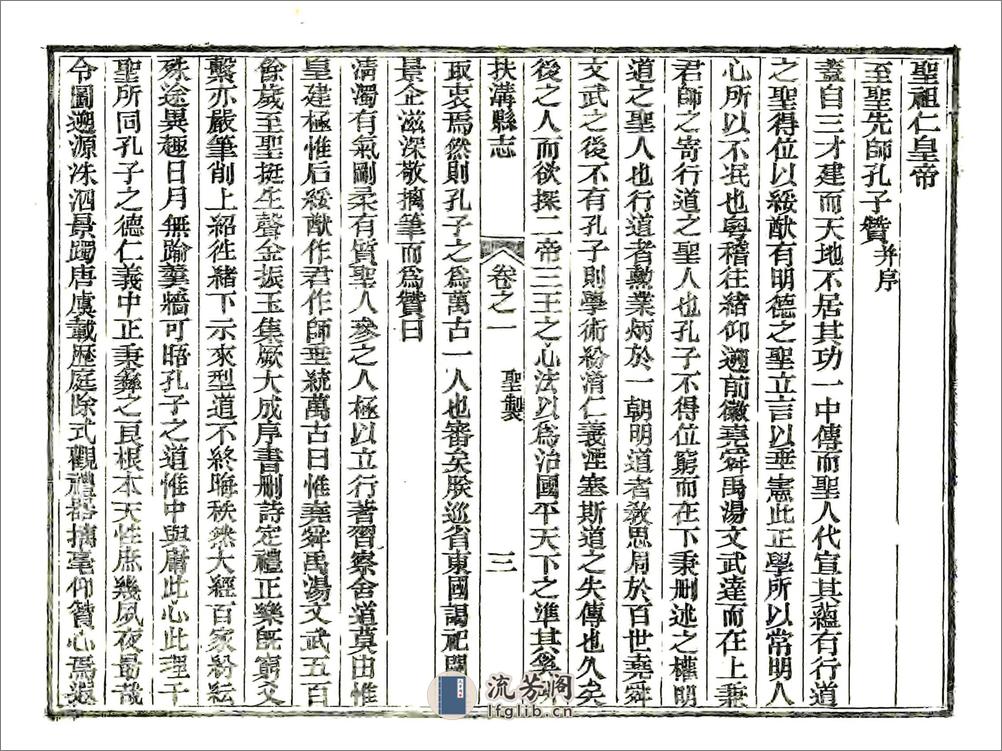 聖祖仁皇帝
至聖先師孔子贊并序
蓋自三才建而天地不居其功一中傳而聖人代宣其蘊有行道
之聖得位以綏猷有明德之聖立言以垂憲此正學所以常明人
心所以不泯也粵稽往緒仰遡前徽堯舜禹湯文武達而在上秉
君師之寄行道之聖人也孔子不得位窮而在下秉刪述之權明
道之聖人也行道者勲業炳於一朝明道者敎思周於百世堯舜
文武之後不有孔子則學術紛淆仁義湮塞斯道之失傳也久矣
後之人而欲探二帝三王之心法以為治國平天下之準其奚所
扶溝縣志
卷之一 聖製 三
取衷焉然則孔子之為萬古一人也審矣朕巡省東國謁祀闕
景企滋深敬摛筆而爲贊曰
淸濁有氣剛柔有質聖人參之人極以立行著習察舍道莫由惟
皇建極惟后綏猷作君作師垂統萬古曰惟堯舜禹湯文武五百
餘歲至聖挺生聲金振玉集厥大成序書刪詩定禮正樂旣窮象
繫亦嚴筆削上紹往緒下示來型道不終晦秩然大經百家紛紜
殊途異趣日月無踰羹牆可晤孔子之道惟中與庸此心此理千
聖所同孔子之德仁義中正秉彝之良根本天性庶幾夙夜勗哉
令圖遡源洙泗景躅唐虞載歷庭除式觀禮器摛毫仰贊心焉遐
流芳閣
lfglib.cn